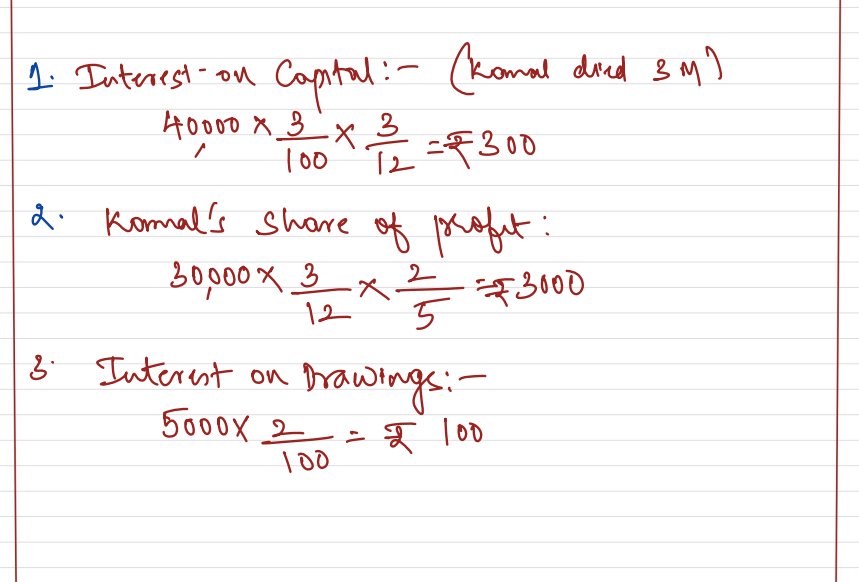 1. Interest-on Capital:- (Komal died 3 M)
40,000 × 3/100 × 3/12 = ₹300
2. Komal's Share of profit:
30,000 × 3/12 × 2/5 = ₹3000
3. Interest on Drawings:-
5000 × 2/100 = ₹ 100